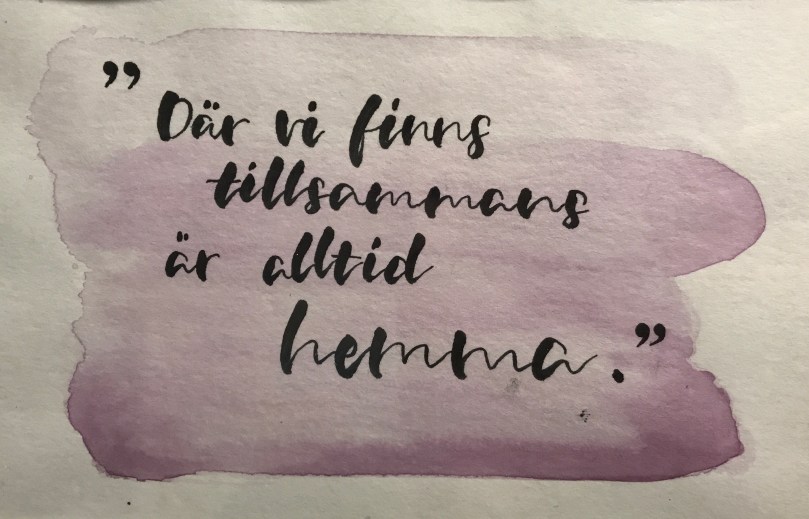 ”Där vi finns
tillsammans
är alltid
hemma.”